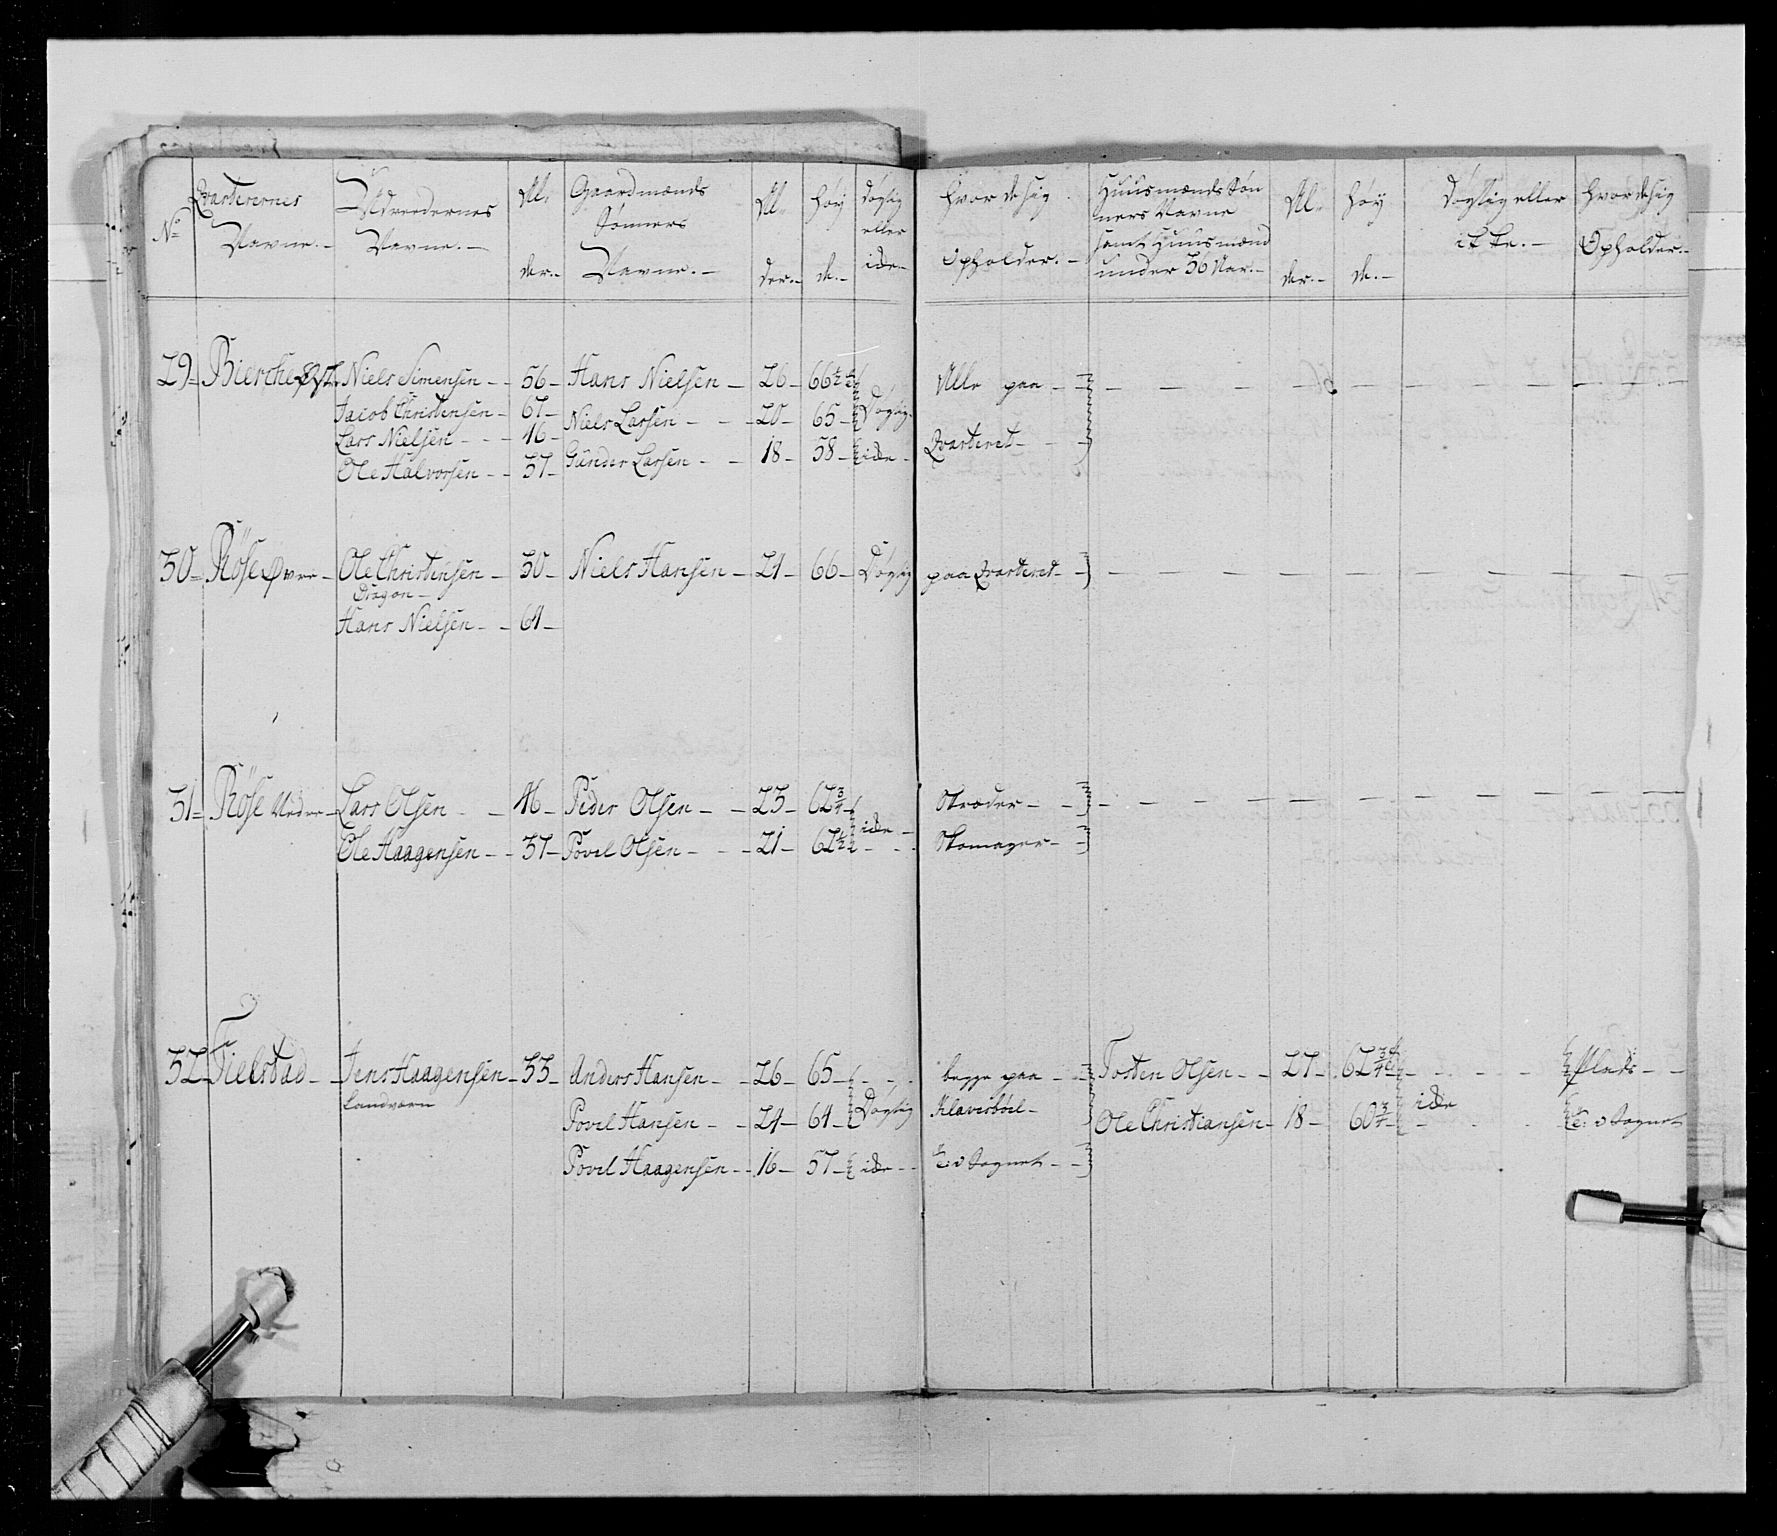 No
Qvarterernes Navne.
Udreedernes Navne.
Alder.
Gaardmænds Sønners Navne.
Alder.
Høyde.
Døgtig eller icke
Hvor de sig Opholder.
Huusmænds Sønners Navne samt Huusmænd under 36 Aar.
Alder.
Høyde.
Døgtig eller icke.
Hvor de sig Opholder.
29 Bierche Niels Simensen 56 Hans Nielsen 26 66½ Døgtig Alle paa Qvarteret
Jacob Christensen 67 Niels Larsen 20 65
Lars Nielsen 46 Gunder Larsen 18 58 icke
Ole Halvorsen 37
30 Röse Øvre Ole Christensen 30 Niels Hansen 24 66 Døgtig paa Qvarteret
Dragon
Hans Nielsen 64
31 Röse Nedre Lars Olsen 46 Peder Olsen 23 62¾ icke Skræder
Ole Haagensen 37 Povel Olsen 21 62½ Skomager
32 Fielstad Jens Haagensen 33 Anders Hansen 26 65 Døgtig begge paa Torsten Olsen 27 62¾ icke
Landværn Povel Hansen 24 64 Klaverböel Ole Christiansen 18 60¾ i Sognet
Povel Haagensen 16 57 icke i Sognet